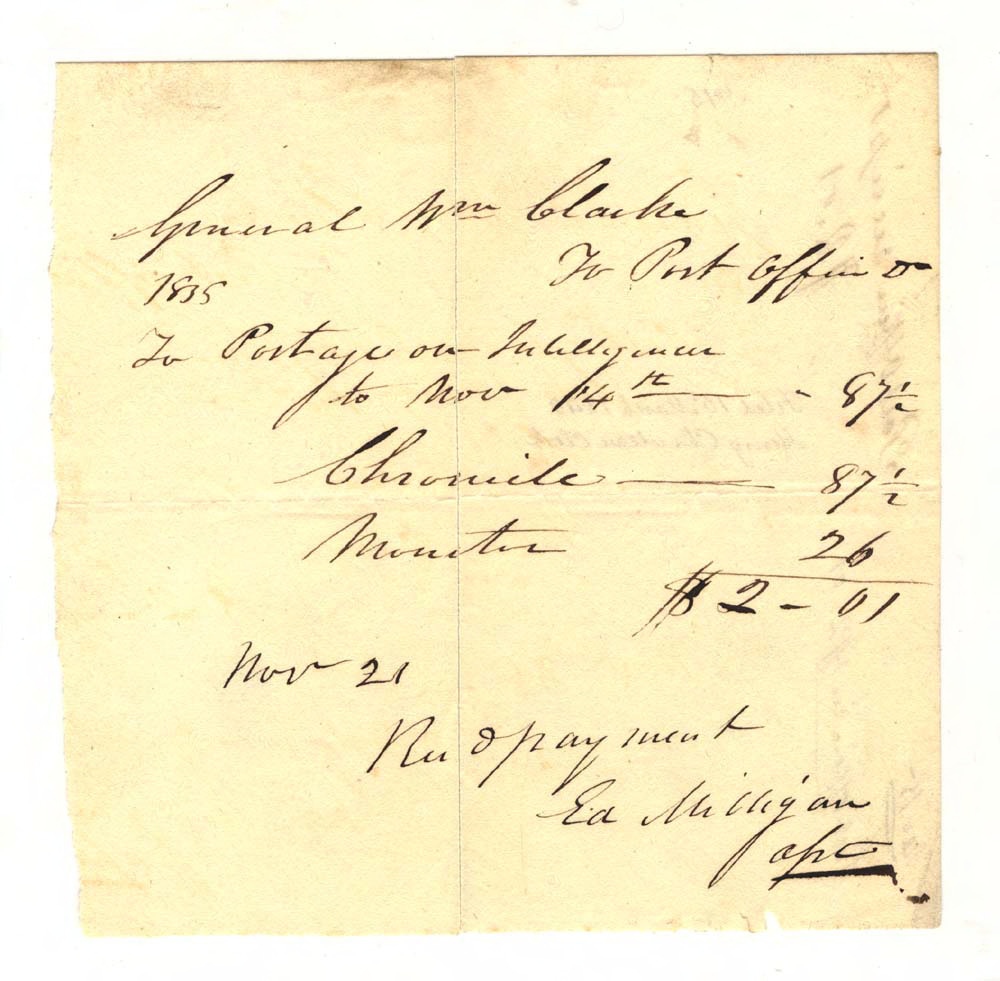 General Wm Clarke
To Post Office Dr
1835
To Postage on Intelligencer
to Nov 14th - 87 1/2
Chronicle — 87 1/2
Monitor 26
$ 2 - 01
Nov 21
Recd payment
Ed Milligan